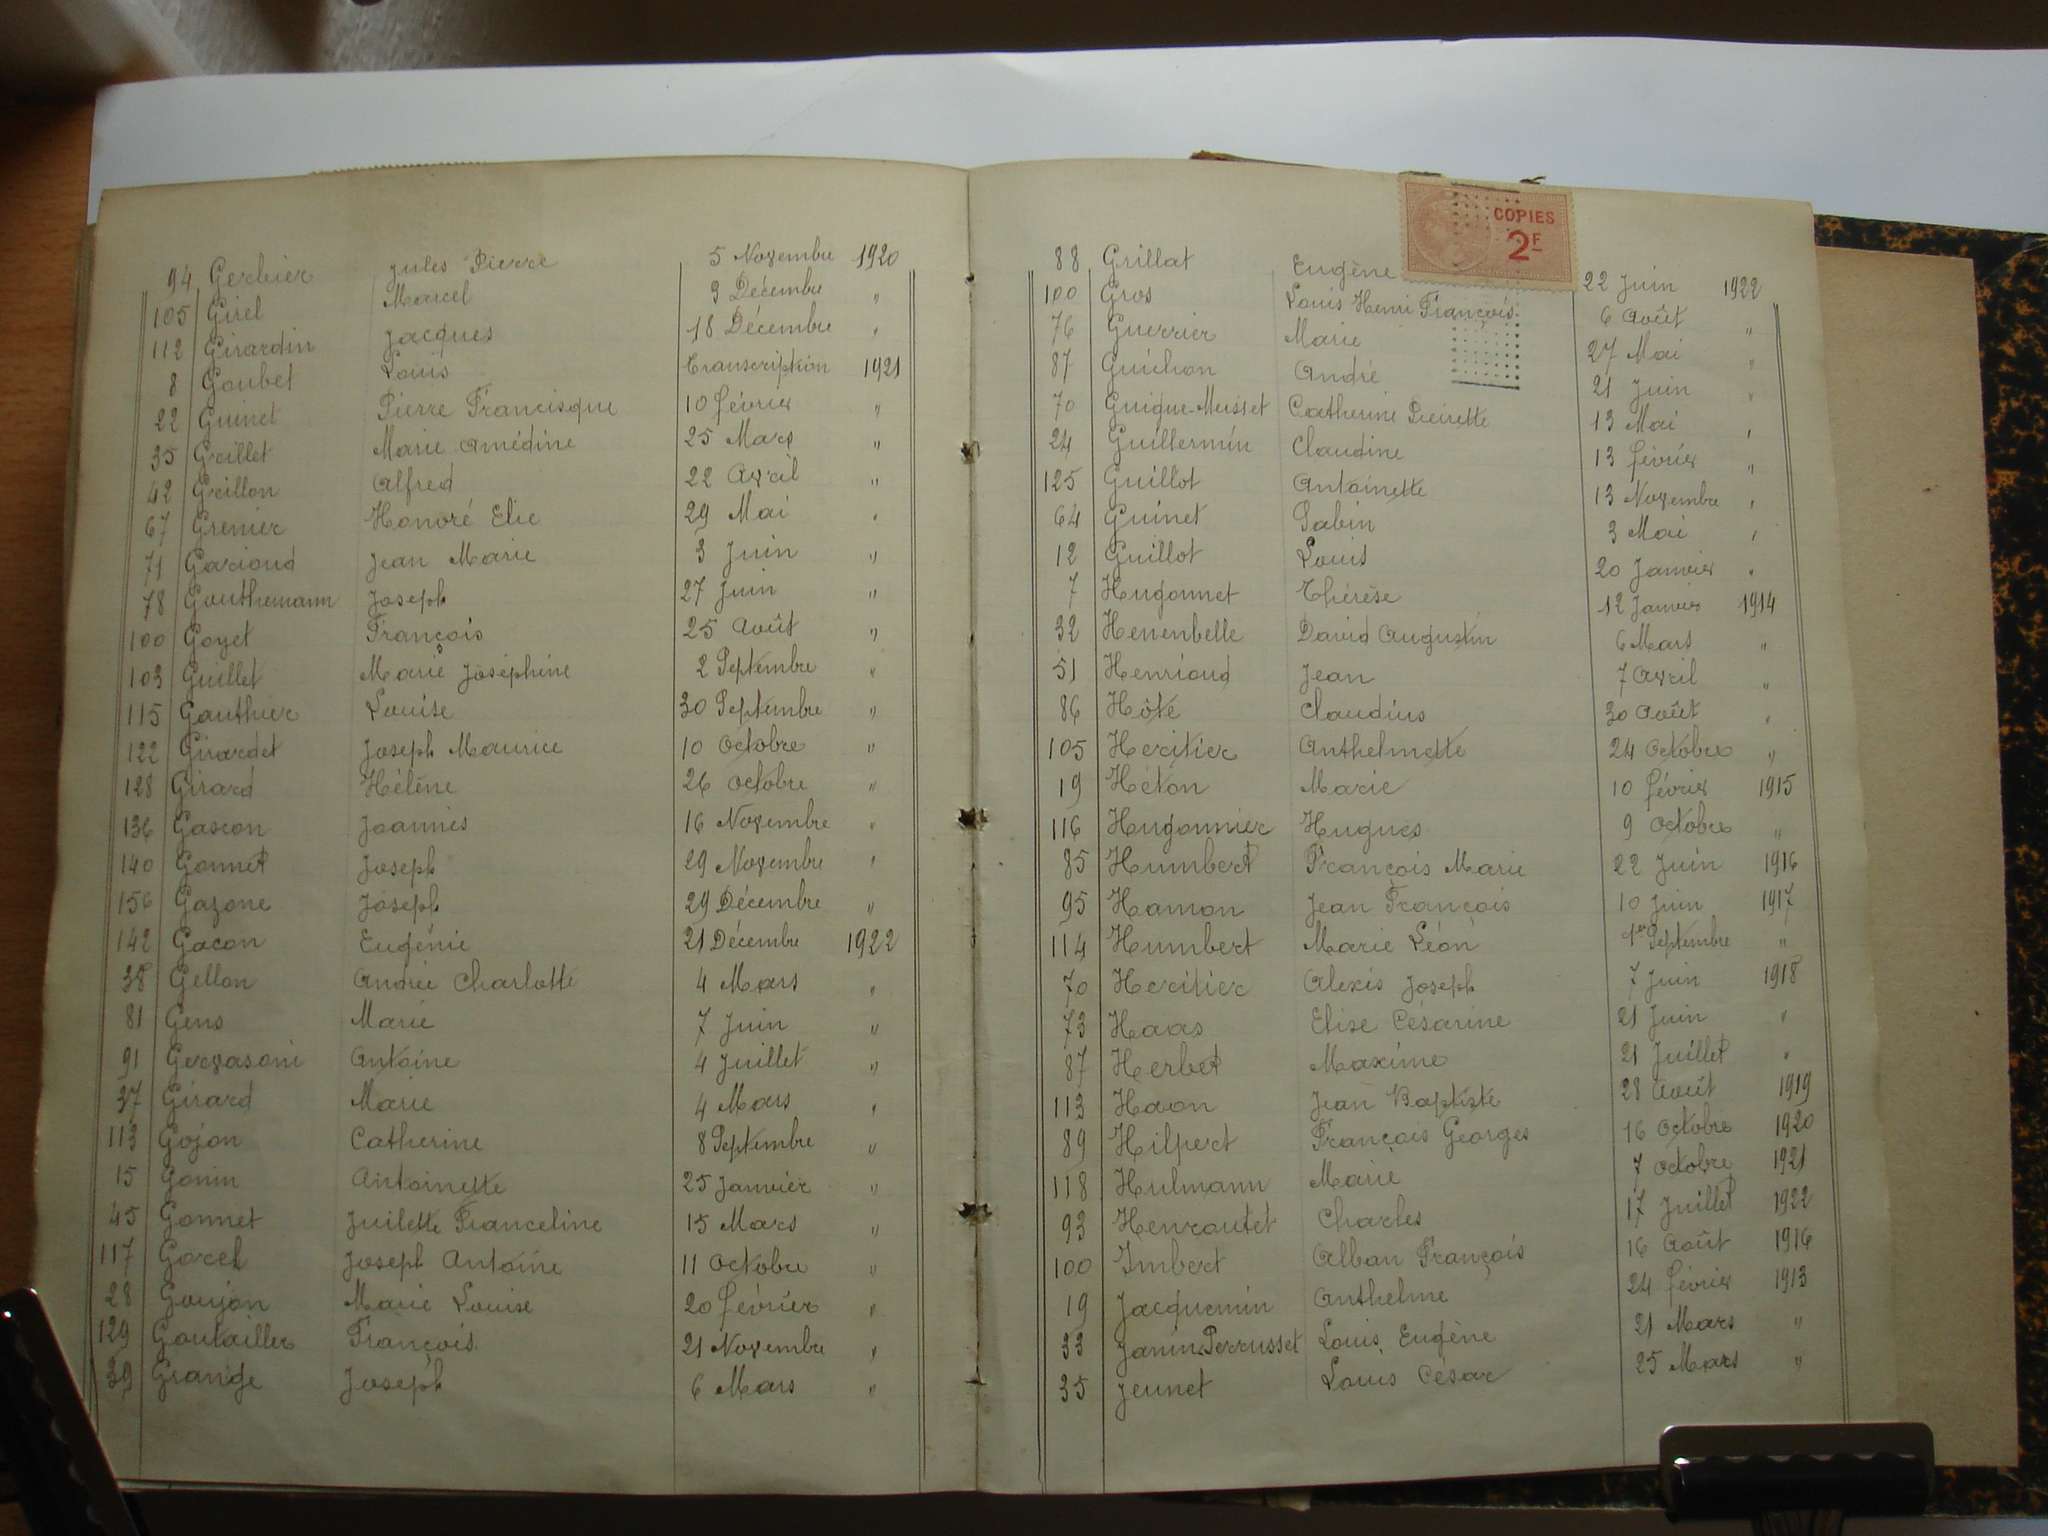 94 Gerbier Jules Pierre 5 Novembre 1920
105 Girel Marcel 9 Décembre "
112 Girardin Jacques 18 Décembre "
8 Goubet Louis Transcription 1921
22 Guinet Pierre Francisque 10 février "
35 Grillet Marie Amédine 25 Mars "
42 Grillon Alfred 22 Avril "
67 Grenier Honoré Elie 29 Mai "
71 Gavioud Jean Marie 3 Juin "
78 Gauthemann Joseph 27 Juin "
100 Goyet François 25 Août "
103 Guillet Marie Joséphine 2 Septembre "
115 Gauthier Louise 30 Septembre "
122 Girardet Joseph Maurice 10 Octobre "
128 Girard Hélène 26 Octobre "
136 Gascon Joannès 16 Novembre "
140 Gonnet Joseph 29 Novembre "
156 Gazone Joseph 29 Décembre "
142 Gacon Eugénie 21 Décembre 1922
38 Gellon Andrée Charlotte 4 Mars "
81 Gens Marie 7 Juin "
91 Gervasoni Antoine 4 Juillet "
37 Girard Marie 4 Mars "
113 Gojon Catherine 8 Septembre "
15 Gonin Antoinette 25 Janvier "
45 Gonnet Juilette Franceline 15 Mars "
117 Gorel Joseph Antoine 11 Octobre "
28 Goujon Marie Louise 20 février "
129 Goutailler François 21 Novembre "
39 Grange Joseph 6 Mars "
COPIES
2F
88 Grillat Eugène 22 Juin 1922
100 Gros Louis Henri François 6 Août "
76 Guerrier Marie 27 Mai "
87 Guichon André 21 Juin "
70 Guigue-Meisset Catherine Pierette 13 Mai "
24 Guillermin Claudine 13 février "
125 Guillot Antoinette 13 Novembre "
64 Guinet Sabin 3 Mai "
12 Guillot Louis 20 Janvier "
7 Hugonnet Thérèse 12 Janvier 1914
32 Henenbelle David Augustin 6 Mars "
51 Henrioud Jean 7 Avril "
86 Hôte Claudius 30 Août "
105 Heritier Anthelmette 24 Octobre "
19 Héton Marie 10 février 1915
116 Hugonnier Hugues 9 Octobre "
85 Humbert François Marie 22 Juin 1916
95 Hamon Jean François 10 Juin 1917
114 Humbert Marie Léon 1er Septembre "
70 Heritier Alexis Joseph 7 Juin 1918
73 Haas Elise Césarine 21 Juin "
87 Herbet Maxime 21 Juillet "
113 Haon Jean Baptiste 28 Août 1919
89 Hilpert François Georges 16 Octobre 1920
118 Hulmann Marie 7 Octobre 1921
93 Henroutet Charles 17 Juillet 1922
100 Imbert Alban François 16 Août 1916
19 Jacquemin Anthelme 24 février 1913
33 Janin-Perrusset Louis Eugène 21 Mars "
35 Jeunet Louis César 25 Mars "